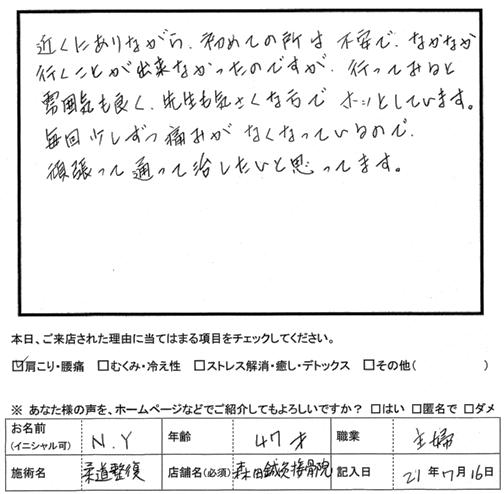 近くにありながら、初めての所は不安で、なかなか
行くことが出来なかったのですが、行ってみると
雰囲気も良く、先生も気さくな方でホッとしています。
毎回少しずつ痛みがなくなっているので、
頑張って通って治したいと思ってます。
本日、ご来店された理由に当てはまる項目をチェックしてください。
☑肩こり・腰痛 □むくみ・冷え性 □ストレス解消・癒し・デトックス □その他( )
※ あなた様の声を、ホームページなどでご紹介してもよろしいですか？ □はい □匿名で □ダメ
お名前 (イニシャル可) N.Y 年齢 47才 職業 主婦
施術名 柔道整復 店舗名(必須) 森田鍼灸接骨院 記入日 21年7月16日